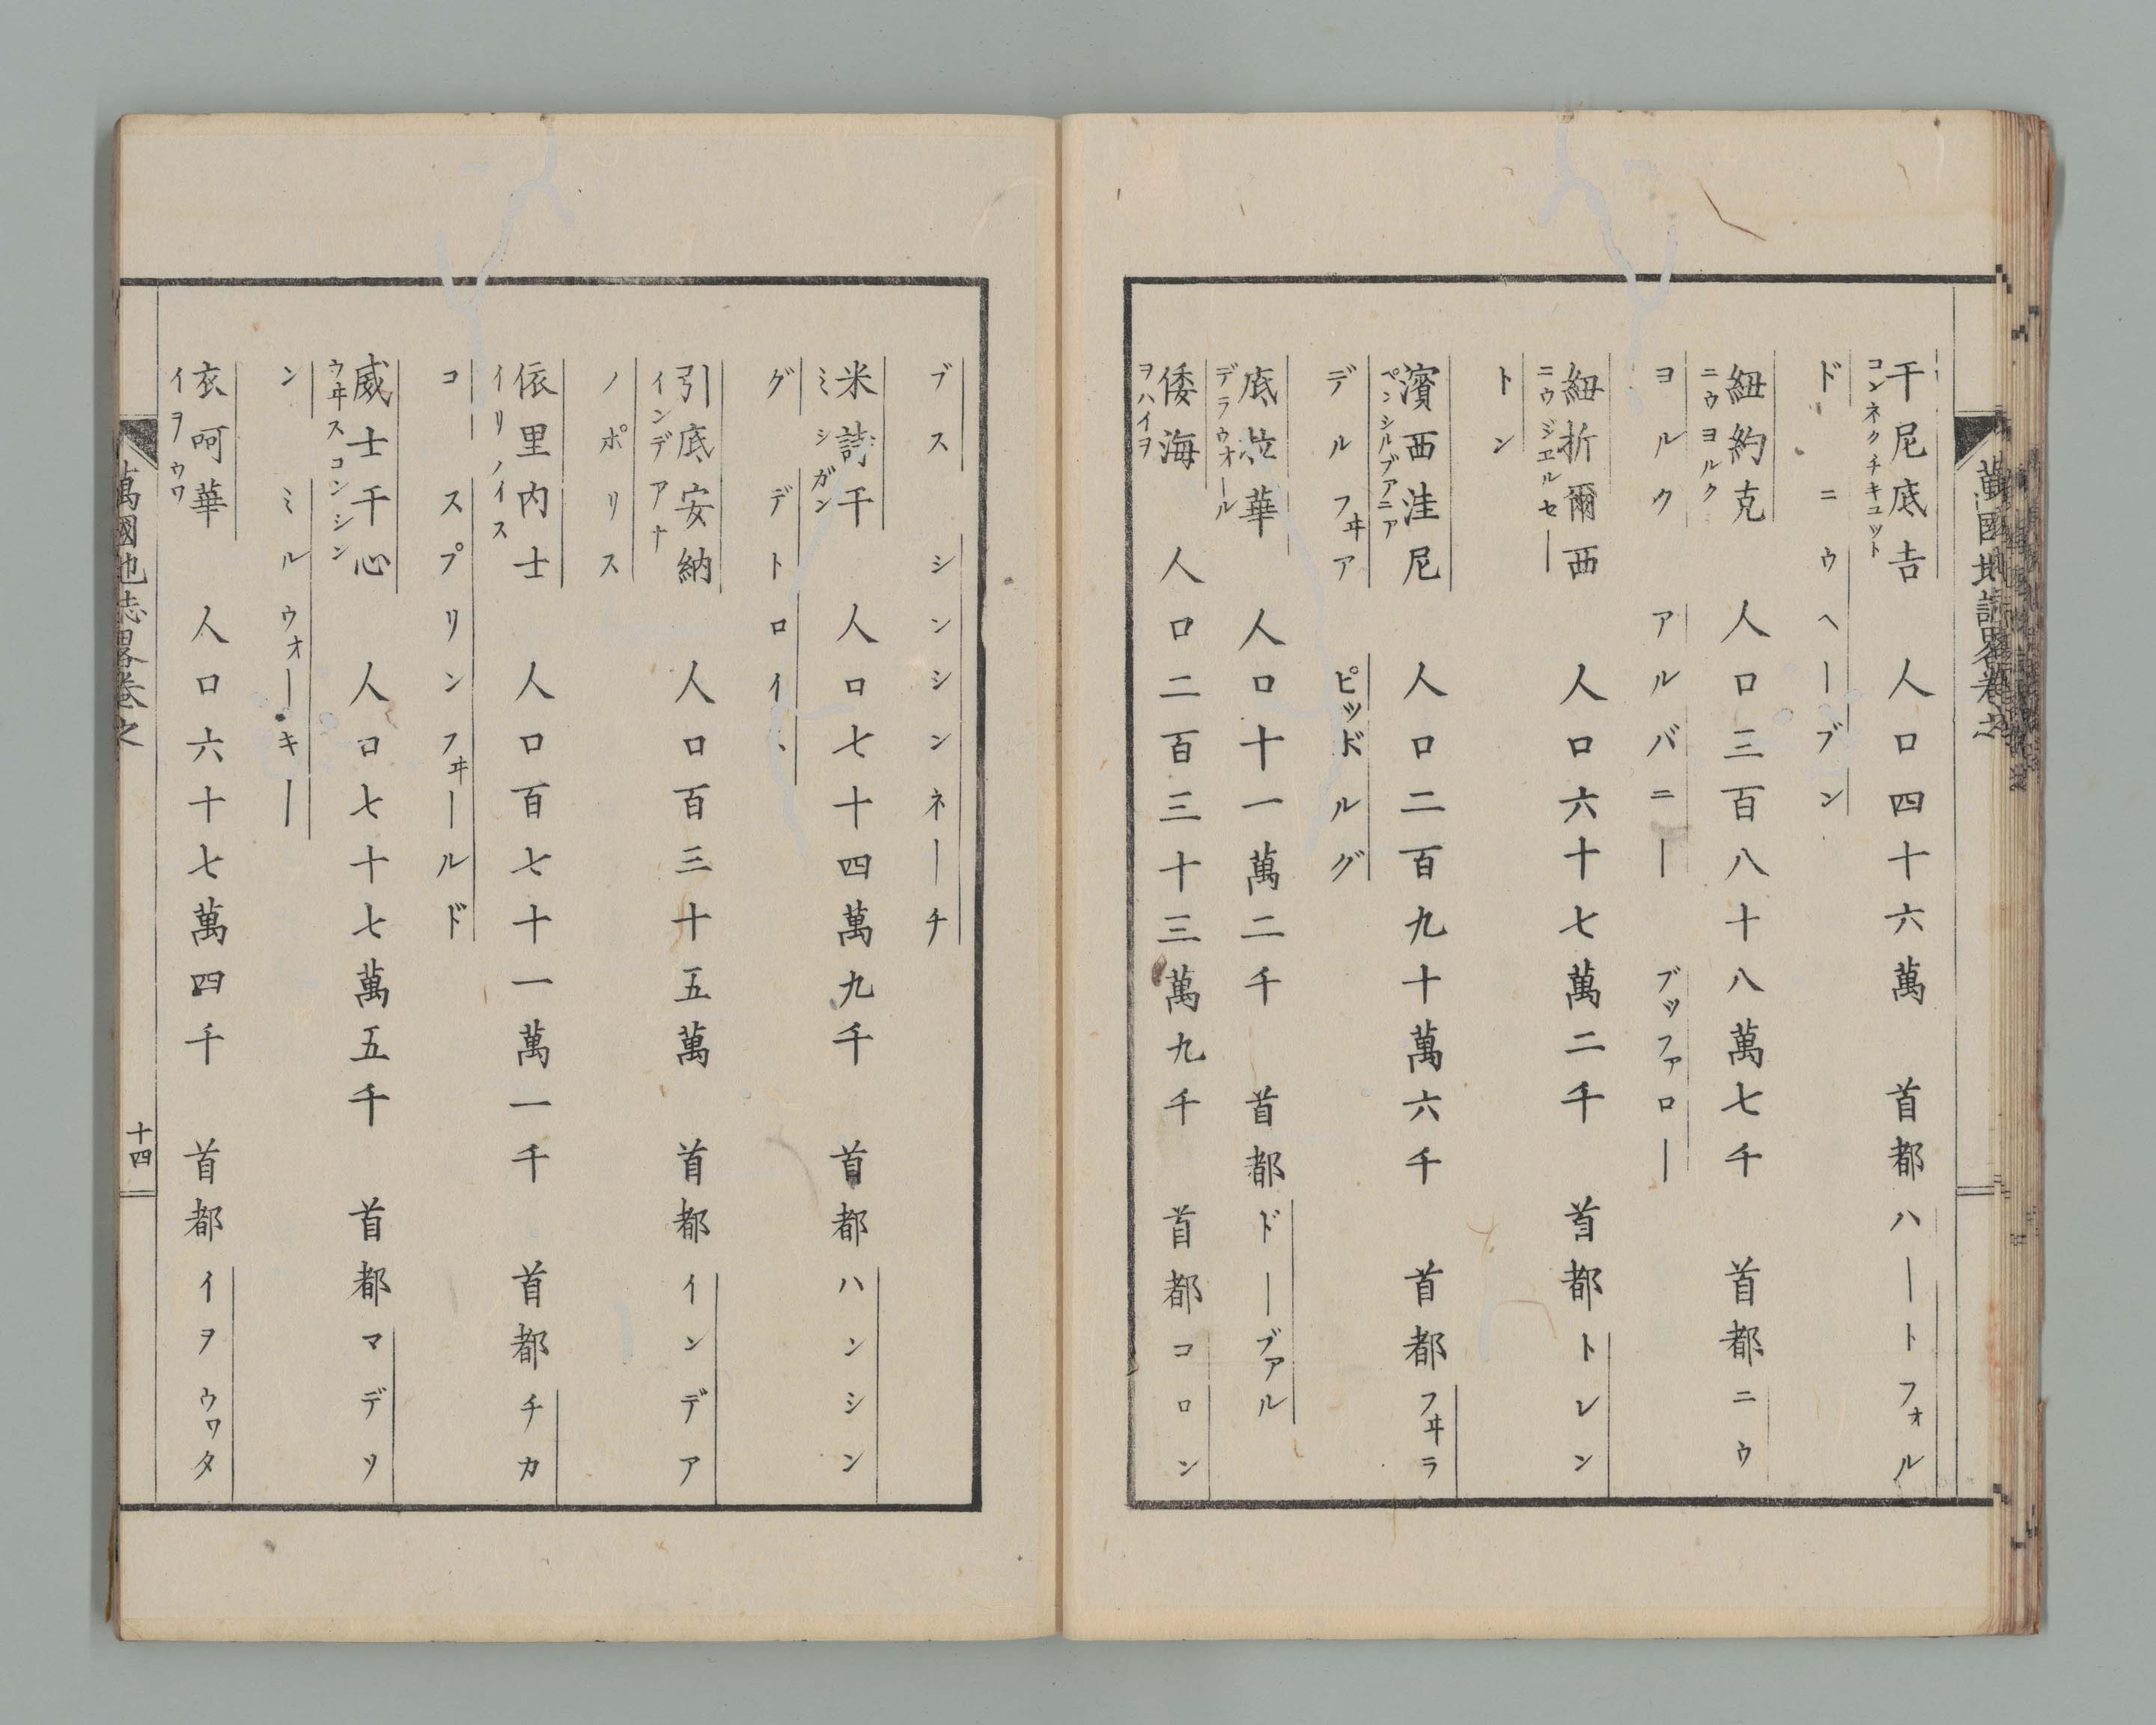 萬國地誌畧卷之
干尼底吉 コンネクチキユット 人口四十六萬 首都ハートフォル
ド ニウヘーブン
紐約克 ニウヨルク 人口三百八十八萬七千 首都ニウ
ヨルク アルバニー ブッファロー
紐折爾西 ニウジエルセー 人口六十七萬二千 首都トレン
トン
濱西洼尼 ペンシルブアニア 人口二百九十萬六千 首都フヰラ
デルフヰア ピッドルグ
底拉華 デラウオール 人口十一萬二千 首都ドーブアル
倭海 ヲハイヲ 人口二百三十三萬九千 首都コロン
ブス シンシンネーチ
米詩干 ミシガン 人口七十四萬九千 首都ハンシン
グ デトロイ、
引底安納 インデアナ 人口百三十五萬 首都インデア
ノポリス
依里内士 イリノイス 人口百七十一萬一千 首都チカ
コ スプリンフヰールド
威士干心 ウヰスコンシン 人口七十七萬五千 首都マデソ
ン ミルウォーキー
衣呵華 イヲウワ 人口六十七萬四千 首都イヲウワタ
萬國地志畧卷之 十四